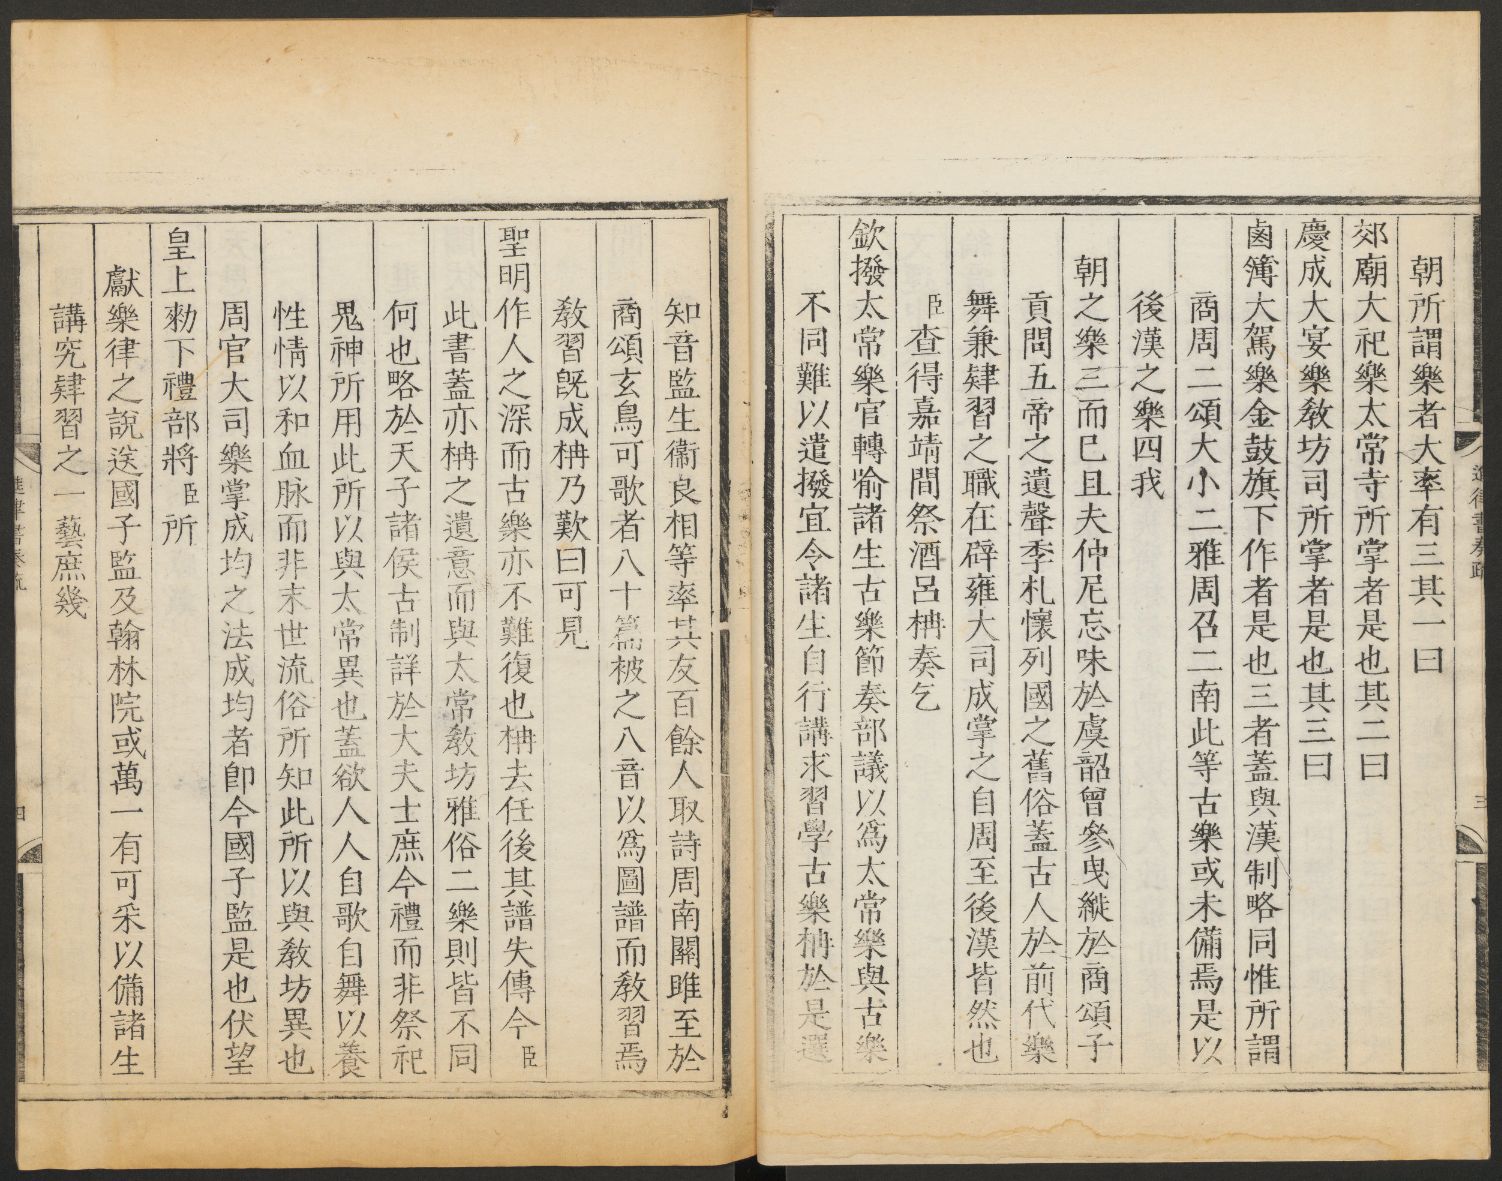 朝所謂樂者大率有三其一曰
郊廟大祀樂太常寺所掌者是也其二曰
慶成大宴樂教坊司所掌者是也其三曰
鹵簿大駕樂金鼓旗下作者是也三者蓋與漢制略同惟所謂
商周二頌大小二雅周召二南此等古樂或未備焉是以
後漢之樂四我
朝之樂三而巳且夫仲尼忘味於虞韶曾參曳縰於商頌子
貢問五帝之遺聲季札懷列國之舊俗蓋古人於前代樂
舞兼肄習之職在辟雍大司成掌之自周至後漢皆然也
臣查得嘉靖間祭酒呂柟奏乞
欽撥太常樂官轉諭諸生古樂節奏部議以爲太常樂與古樂
不同難以遣撥宜令諸生自行講求習學古樂柟於是選
進律書奏疏
三
知音監生衞良相等率其友百餘人取詩周南關雎至於
商頌玄鳥可歌者八十篇被之八音以爲圖譜而敎習焉
敎習旣成柟乃歎曰可見
聖明作人之深而古樂亦不難復也柟去任後其譜失傳今臣
此書蓋亦柟之遺意而與太常敎坊雅俗二樂則皆不同
何也略於天子諸侯古制詳於大夫士庶今禮而非祭祀
鬼神所用此所以與太常異也蓋欲人人自歌自舞以養
性情以和血脉而非末世流俗所知此所以與敎坊異也
周官大司樂掌成均之法成均者卽今國子監是也伏望
皇上勑下禮部將臣所
獻樂律之說送國子監及翰林院或萬一有可采以備諸生
講究肄習之一藝庶幾
進律書奏疏
四